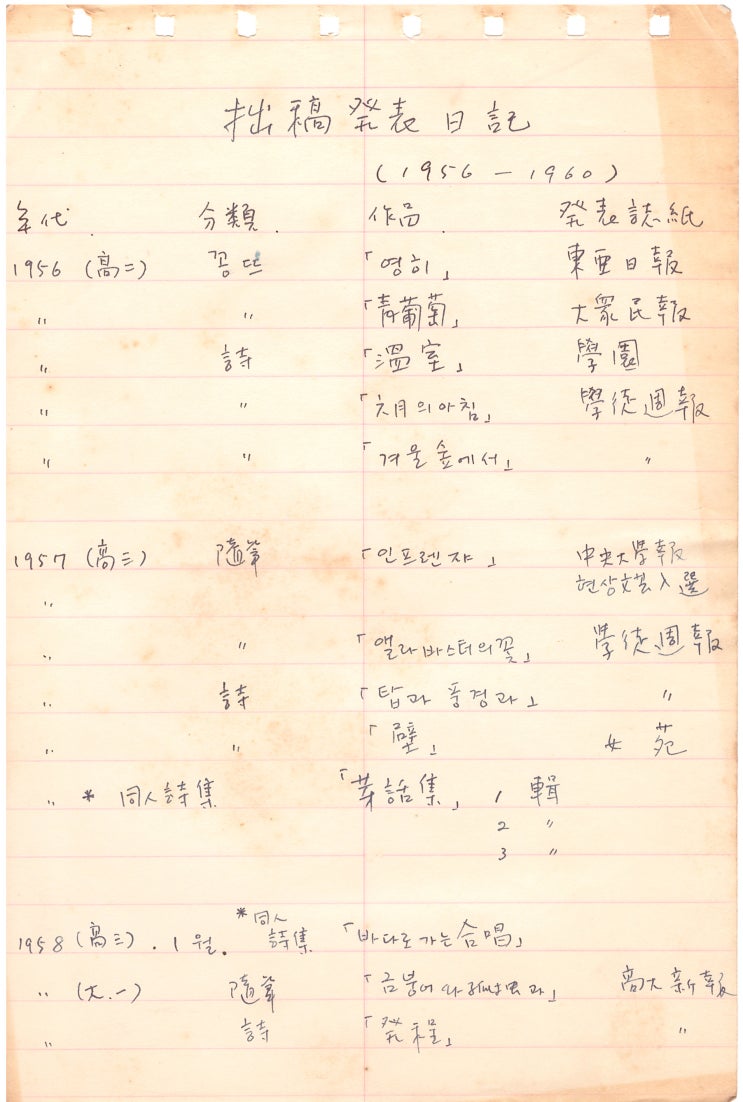 拙稿發表日記
(1956 — 1960)
年代. 分類. 作品. 発表誌紙
1956 (高二) 꽁뜨 「영히」 東亜日報
〃 〃 「青葡萄」 大衆民報
〃 詩 「溫室」 學園
〃 〃 「六月의아침」 學徒週報
〃 〃 「겨울숲에서」 〃
1957 (高三) 隨筆 「인프렌쟈」 中央大學報
〃 현상文芸入選
〃 〃 「앨라바스터의꽃」 學徒週報
〃 詩 「탑과 풍경과」 〃
〃 〃 「壁」 女苑
〃 * 同人詩集 「芽話集」 1 輯
2 〃
3 〃
1958 (高三). 1월. *同人詩集 「바다로가는合唱」
〃 (大.一) 隨筆 「금붕어와 과」 高大新報
〃 詩 「発程」 〃